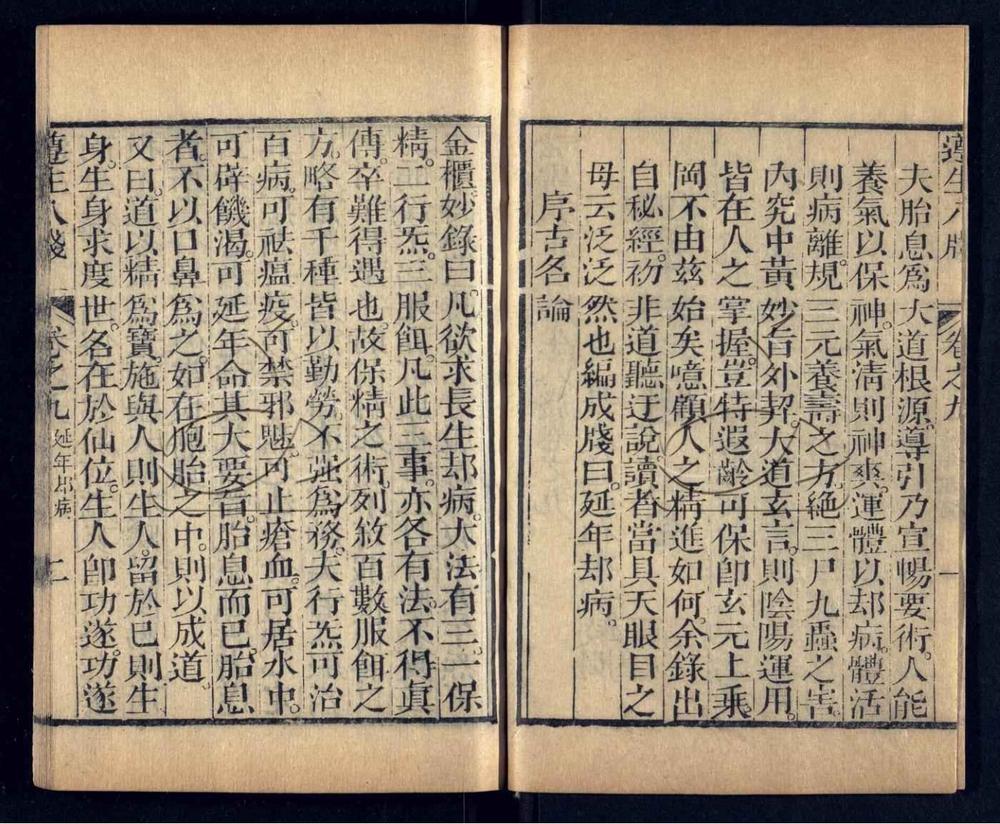 遵生八牋 卷之九 一
夫胎息爲大道根源導引乃宣暢要術人能
養氣以保神氣清則神爽運體以却病體活
則病離規三元養壽之方絕三尸九蟲之害
內究中黃妙旨外契大道玄言則陰陽運用
皆在人之掌握豈特遐齡可保卽玄元上乘
罔不由茲始矣噫顧人之精進如何余錄出
自秘經初非道聽迂說讀者當具天眼目之
毋云泛泛然也編成牋曰延年却病
序古名論
金櫃妙錄曰凡欲求長生却病大法有三一保
精二行炁三服餌凡此三事亦各有法不得眞
傳卒難得遇也故保精之術列敘百數服餌之
方略有千種皆以勤勞不强爲務夫行炁可治
百病可祛瘟疫可禁邪魅可止瘡血可居水中
可辟饑渴可延年命其大要者胎息而已胎息
者不以口鼻爲之如在胞胎之中則以成道
又曰道以精爲寶施與人則生人留於已則生
身生身求度世名在於仙位生人卽功遂功遂
遵生八牋 卷之九 延年却病 二